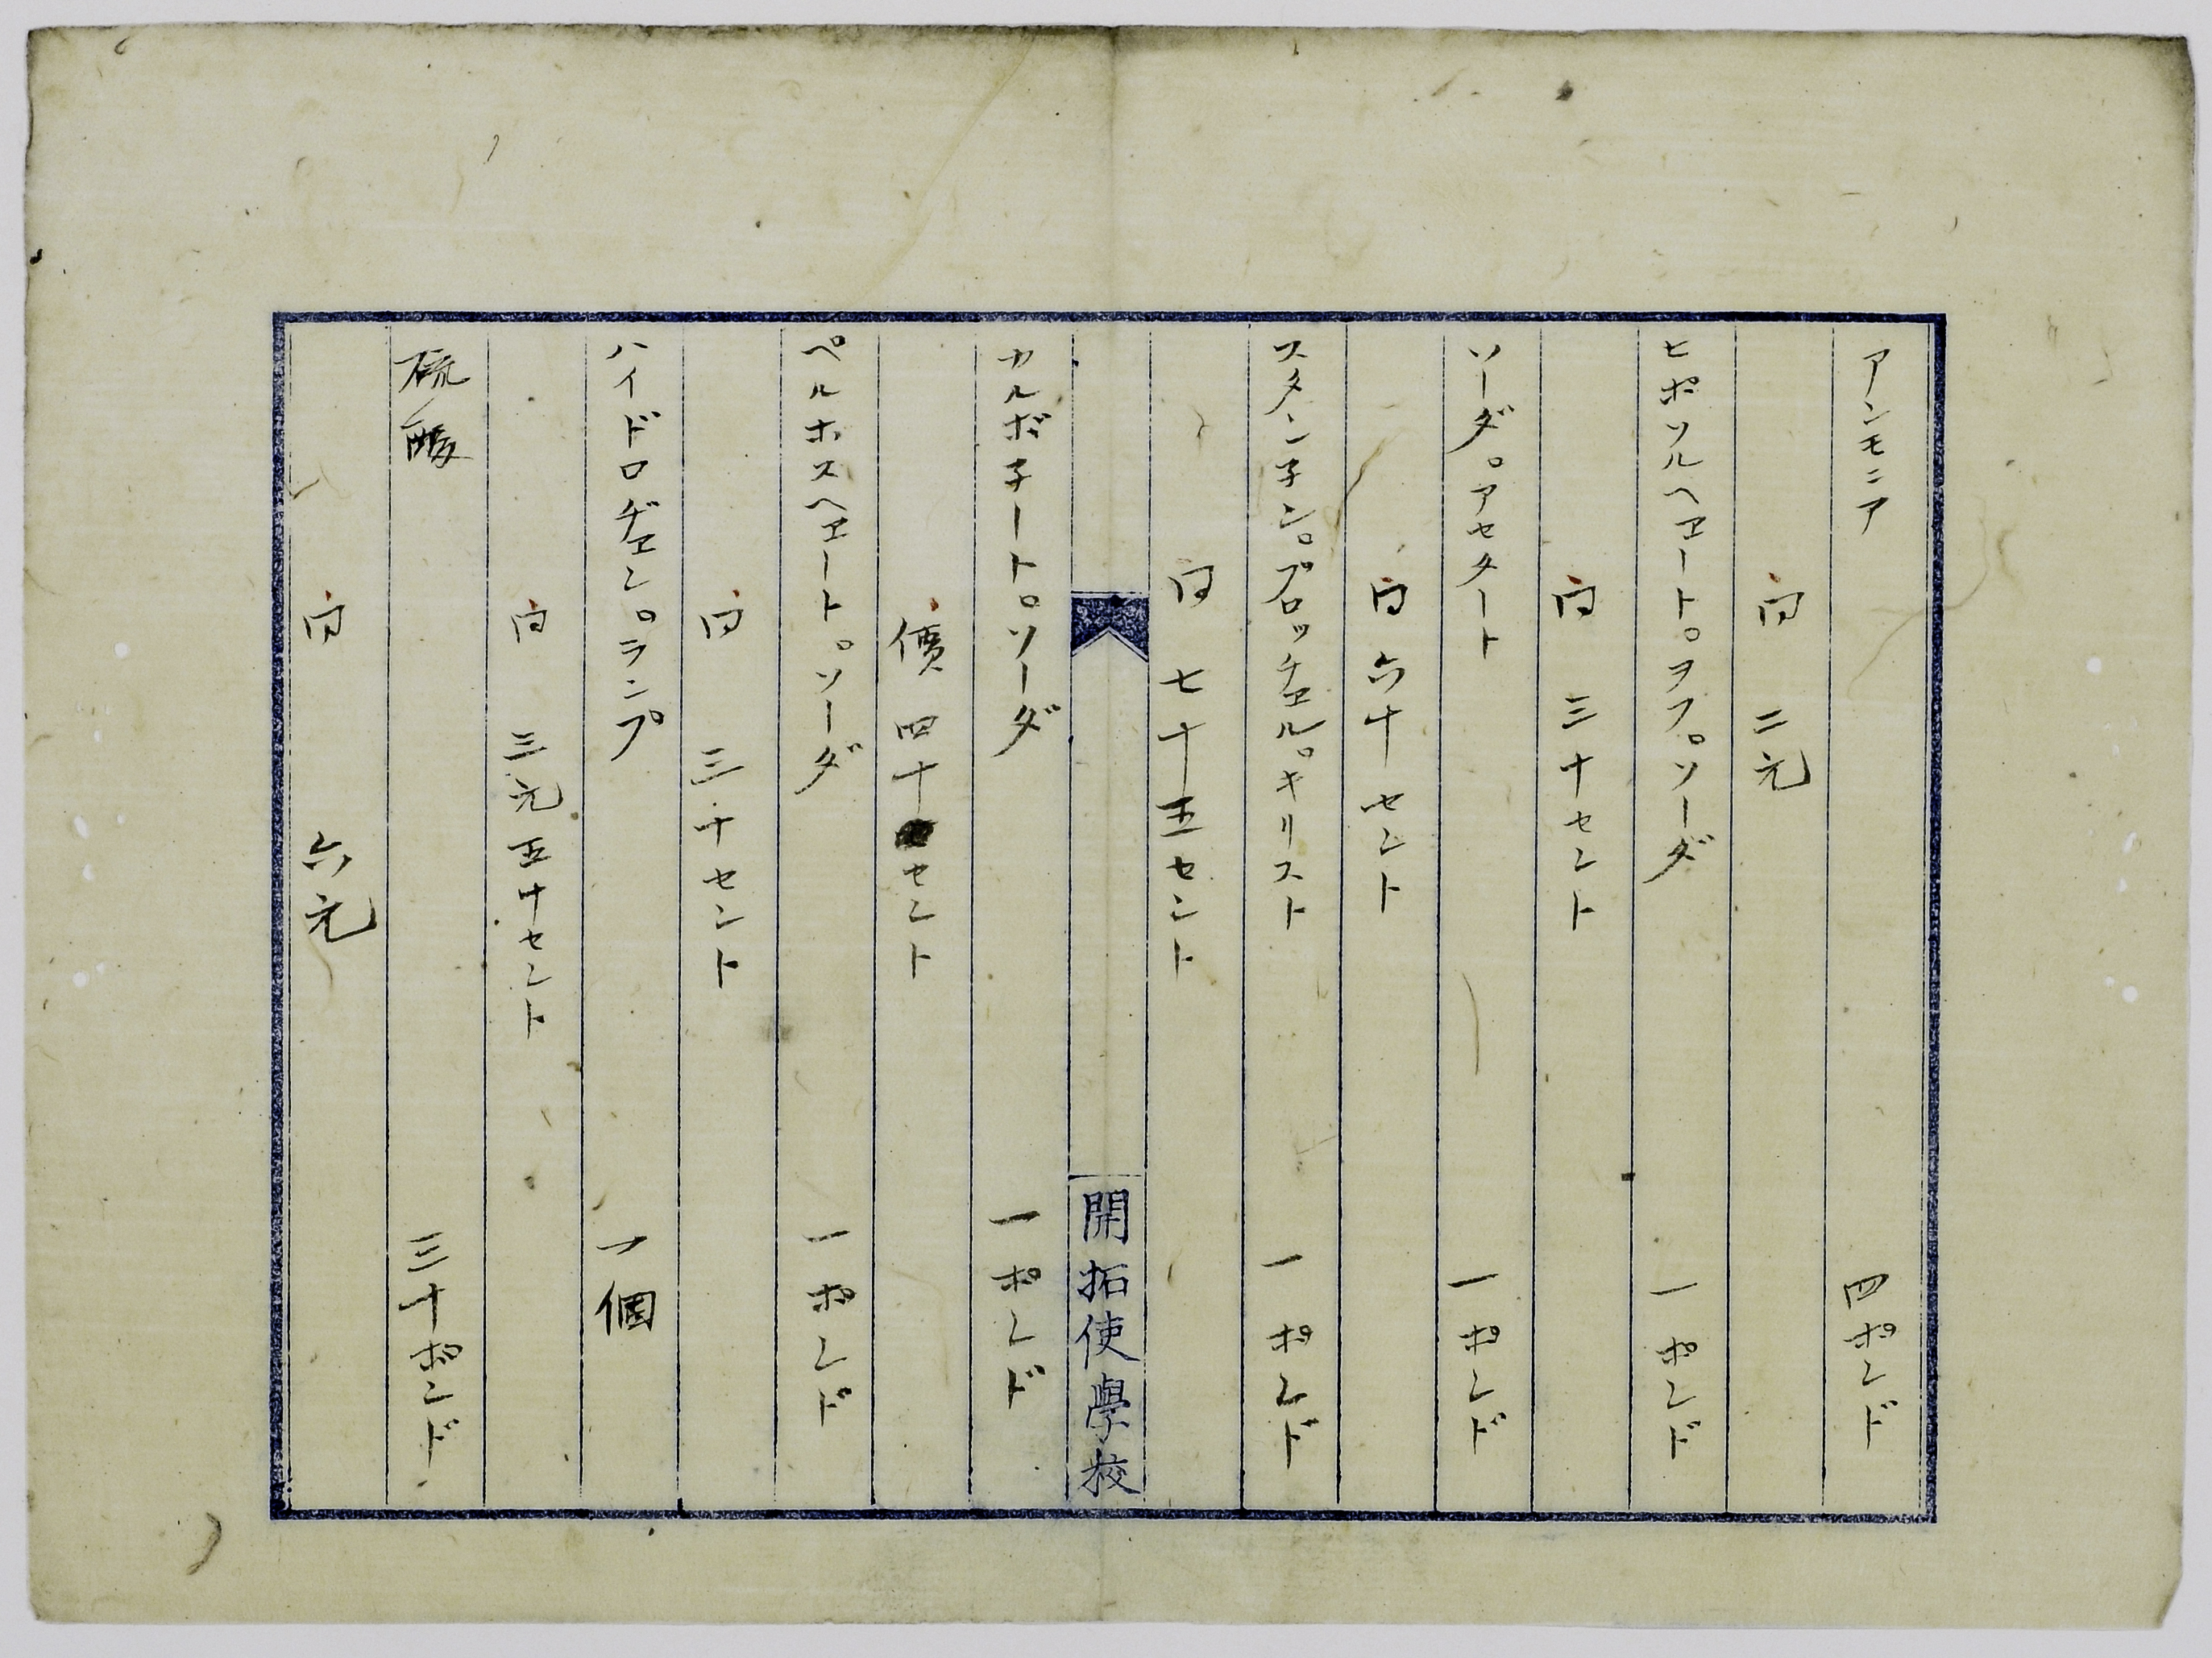 アンモニア 四ポンド
同 二元
ヒポソルヘエート。ヲフ。ソーダ 一ポンド
同 三十セント
ソーダ。アセタート 一ポンド
同 六十セント
スタンチン。ブロッチエル。キリスト 一ポンド
同 七十五セント
開拓使學校
カルボ子ート。ソーダ 一ポンド
價 四十セント
ペルホスヘエート。ソーダ 一ポンド
同 三十セント
ハイドロヂエン。ランプ 一個
同 三元五十セント
硫酸 三十ポンド
同 六元